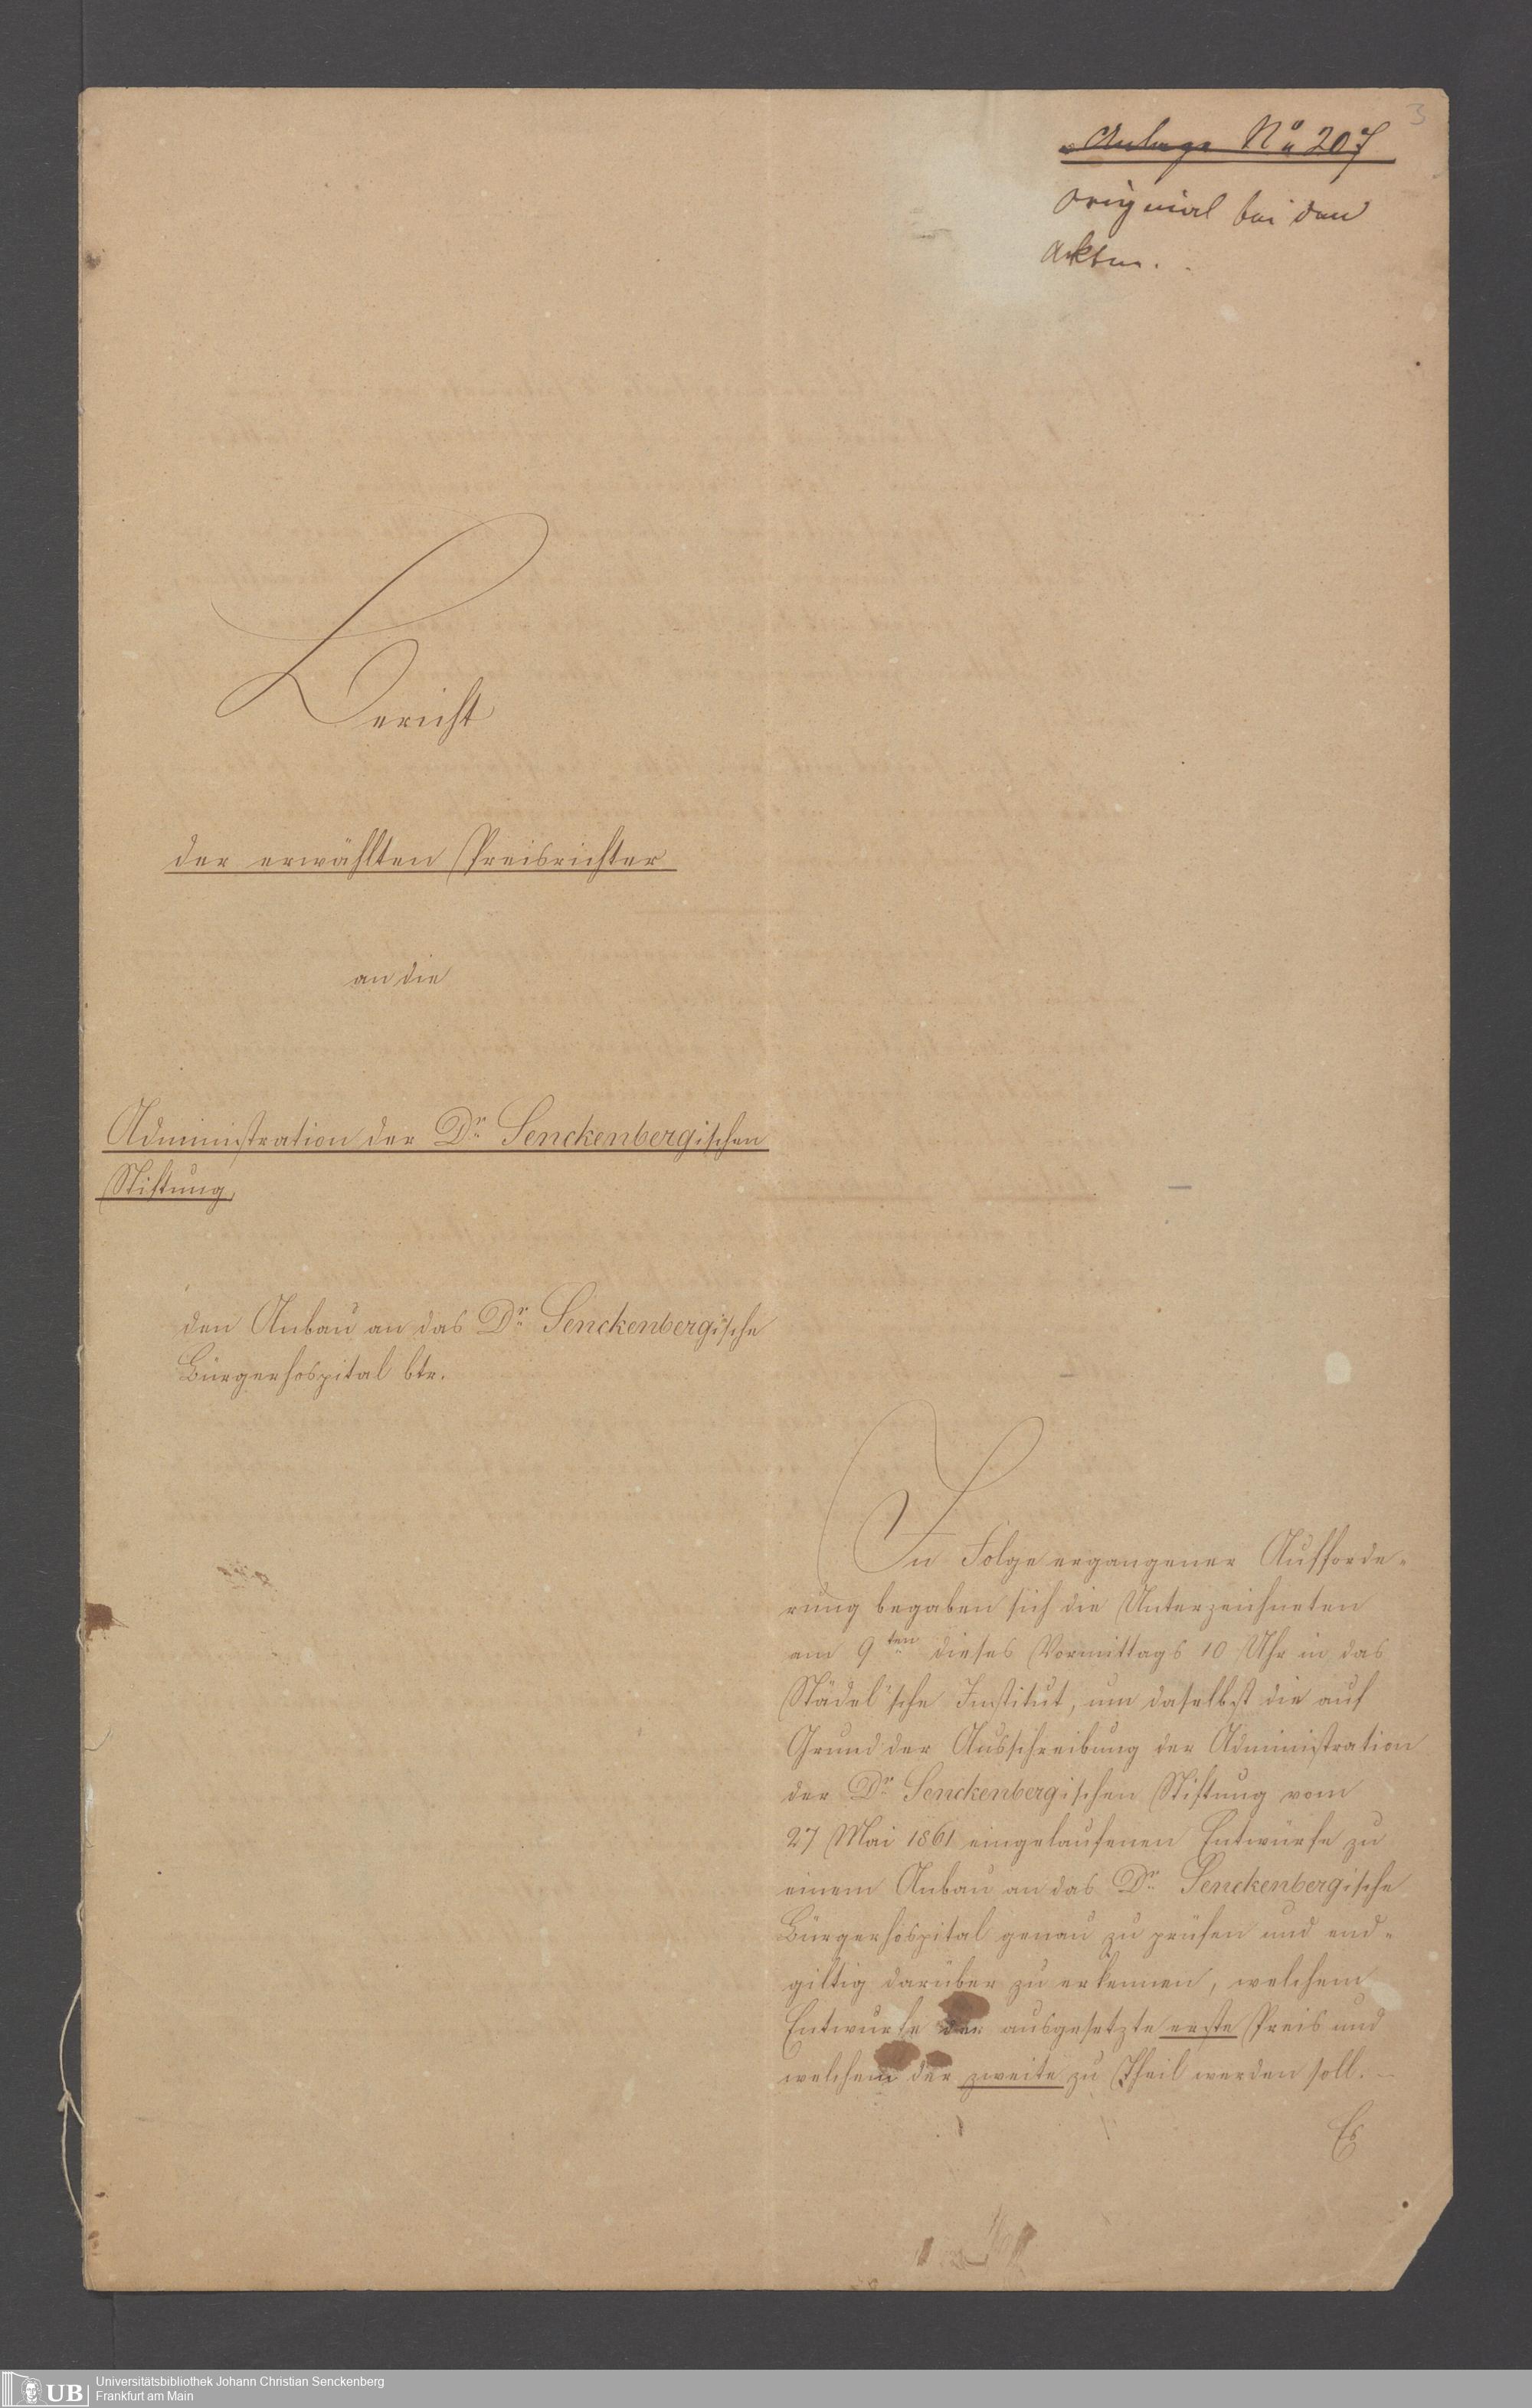 3
Anlage No 207
Original bei den
Akten.
Bericht
der erwählten Preisrichter
an die
Administration der Dr. Senckenbergischen
Stiftung,
den Anbau an das Dr. Senckenbergische
Bürgerhospital btr.
In Folge ergangener Aufforde-
rung begaben sich die Unterzeichneten
am 9ten dieses Vormittags 10 Uhr in das
Städel'sche Institut, um daselbst die auf
Grund der Ausschreibung der Administration
der Dr. Senckenbergischen Stiftung vom
27 Mai 1861 eingelaufenen Entwürfe zu
einem Anbau an das Dr. Senckenbergische
Bürgerhospital genau zu prüfen und end-
giltig darüber zu erkennen, welchem
Entwurfe der ausgesetzte erste Preis und
welchem der zweite zu Theil werden soll. –
Es
UB
Universitätsbibliothek Johann Christian Senckenberg
Frankfurt am Main